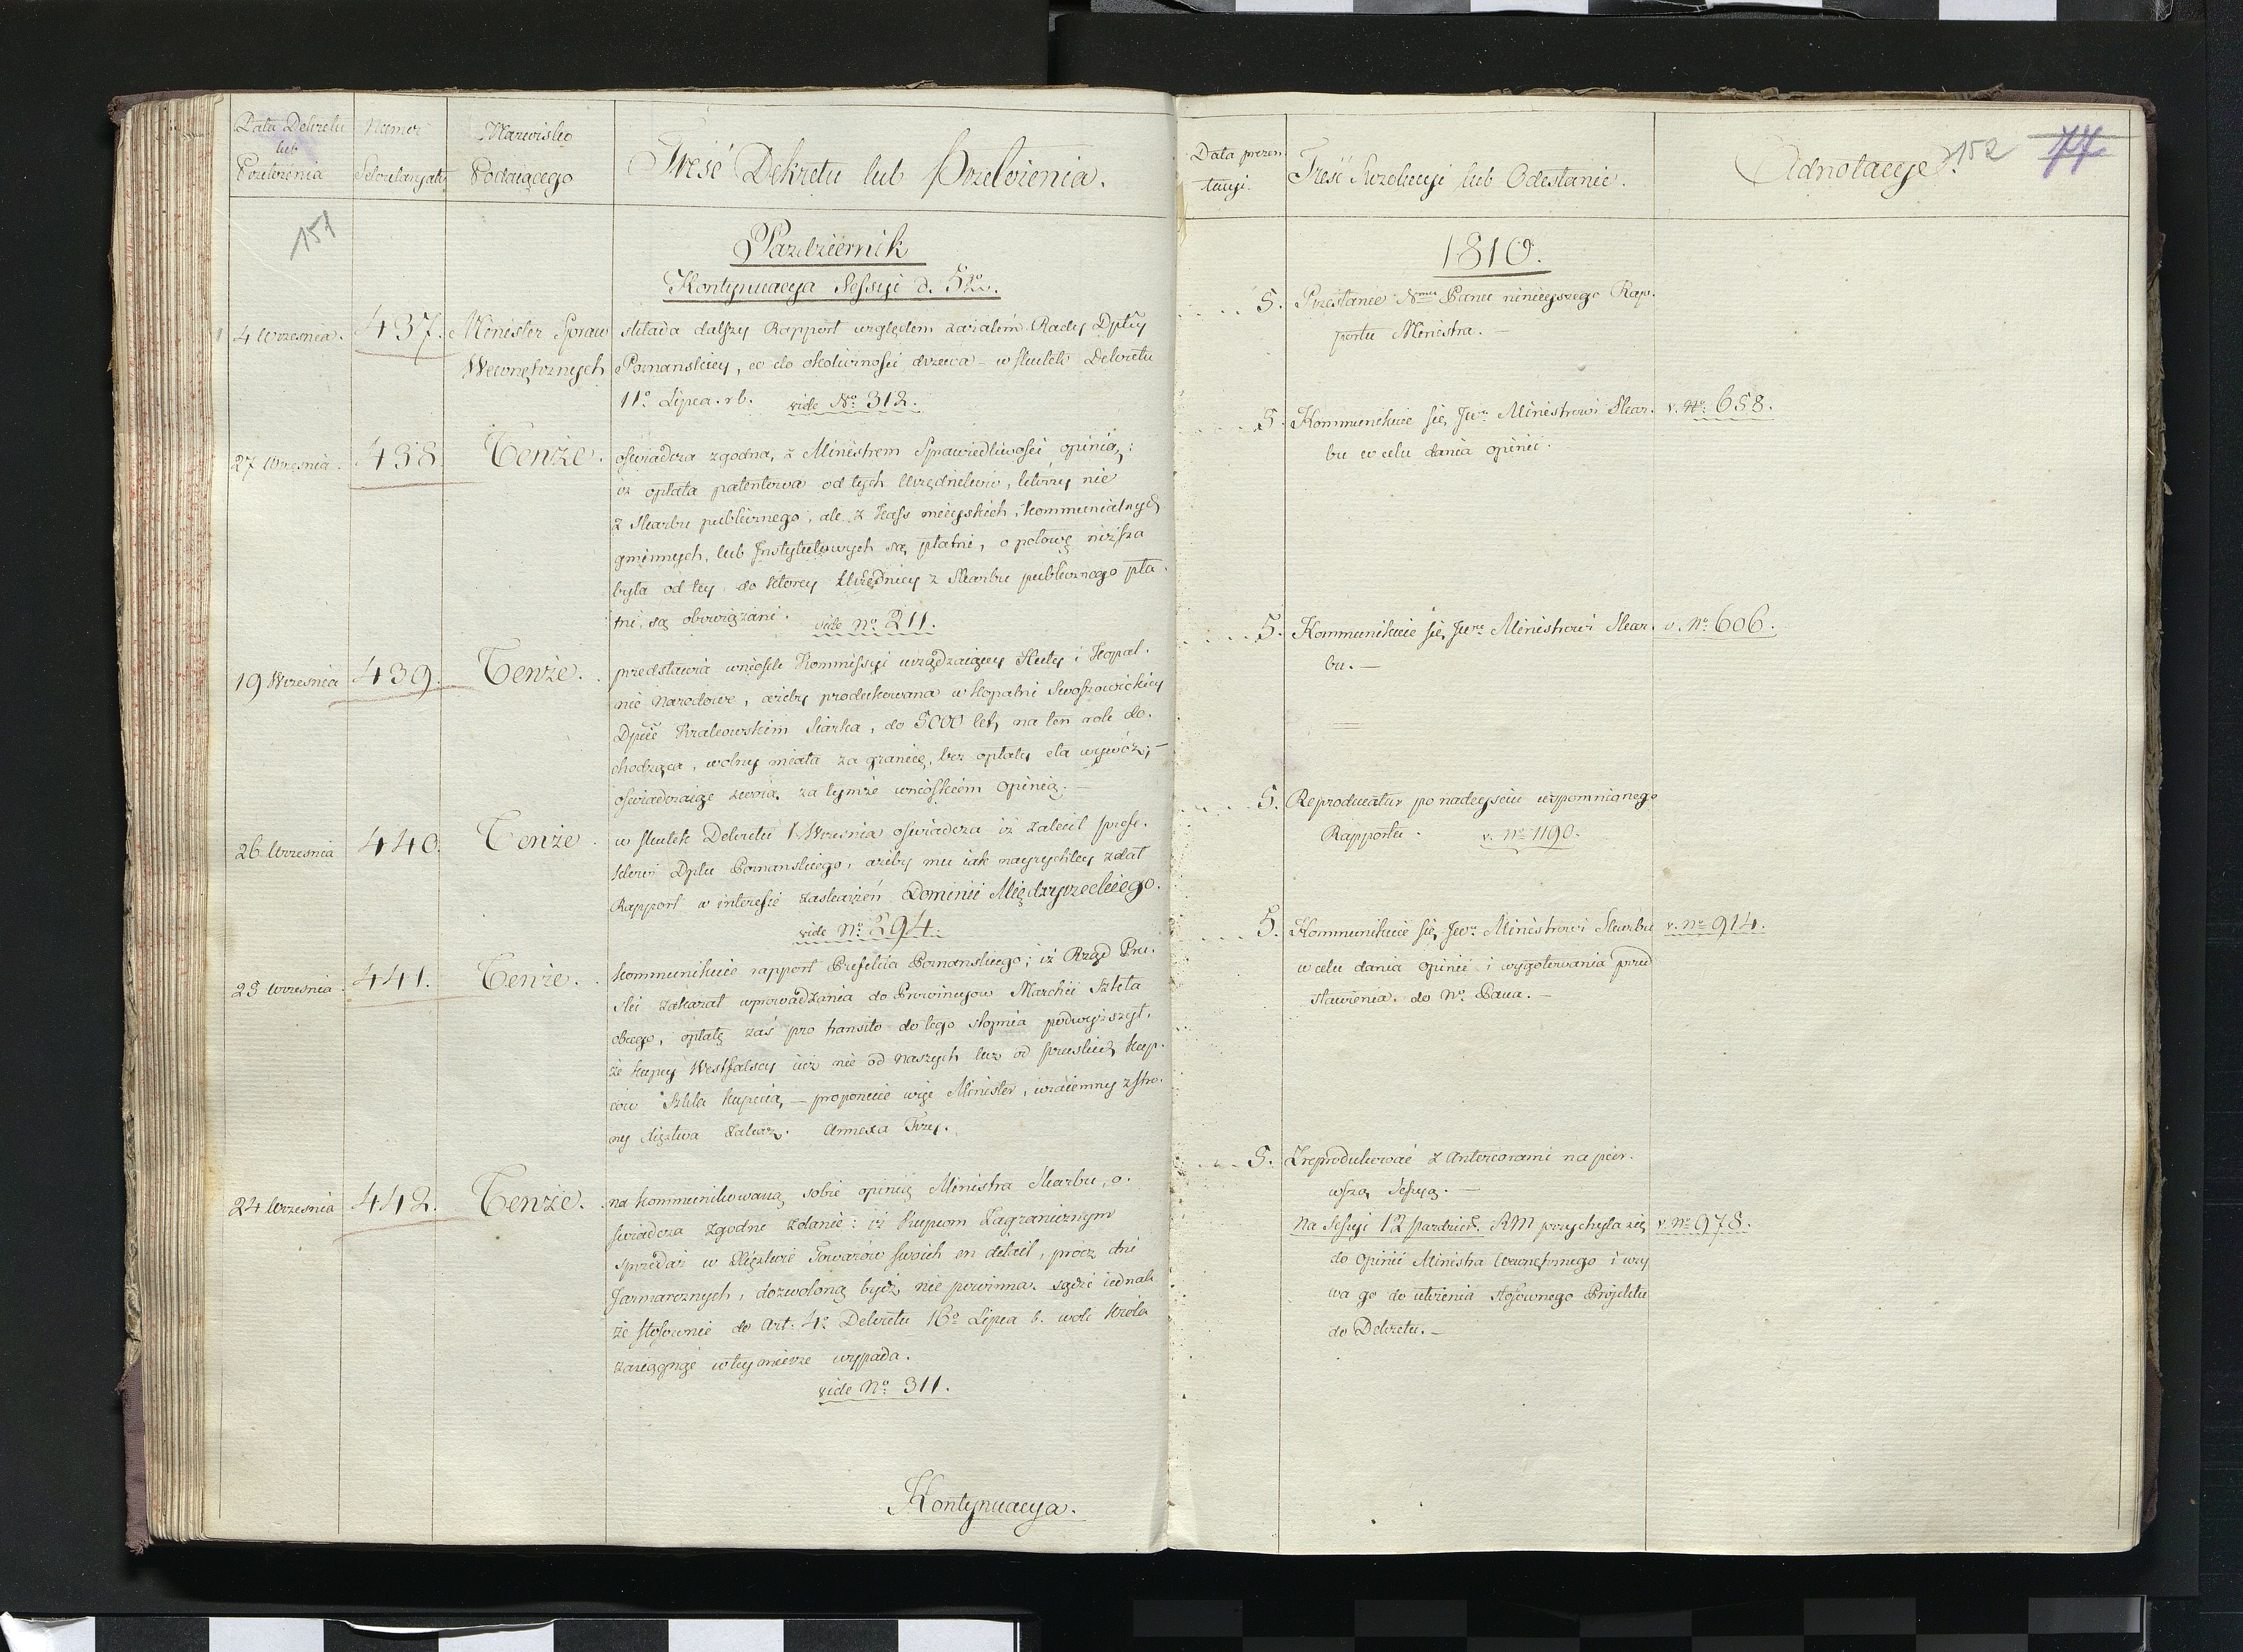 Data Dekretu
lub
Przełożenia
Numer
Sekretaryatu
Nazwisko
Podaiącego
Treść Dekretu lub Przełożenia.
Data prezen-
tacyi.
Treść Rezolucyi lub Odesłanie.
Adnotacye.
152
77
151
Pazdziernik
1810.
Kontynuacya Sessyi d. 5go.
4 Wrzesnia.
437.
Minister Spraw
Wewnętrznych
składa dalszy Rapport względem zażaleń Rady Dptu
Poznanskiey, co do okoliczności drzewa - w skutek Dekretu
11o Lipca. r b. vide No. 312.
5. Przesłanie Nmu Panu ninieyszego Rap-
portu Ministra. —
27 Wrzesnia.
438.
Tenże.
oświadcza zgodną z Ministrem Sprawiedliwości opinią;
iż opłata patentowa od tych Urzędników, którzy nie
z Skarbu publicznego, ale z Kass mieyskich, kommunalnych,
gminnych, lub Instytutowych są płatni, o połowę niższa
była od tey do ktorey Urzędnicy z Skarbu publicznego pła-
tni, są obowiązani. vide No. 211.
5. Kommunikuie się Jwu Ministrowi Skar-
bu w celu dania opinii.
v. No. 658.
19 Wrzesnia
439.
Tenże.
przedstawia wniosek Kommissyi urządzaiącey Huty i Kopal-
nie Narodowe, ażeby produkowana w kopalni Swoszowickiey
Dpcie Krakowskim Siarka, do 5000 Ctr, na ten rok do-
chodząca, wolny miała za granicę, bez opłaty cła wywóz; —
oświadczaiąc swoią za tymże wnioskiem opinią. —
5. Kommunikuie się Jwu Ministrowi Skar-
bu. —
v. No. 606.
26 Wrzesnia
440.
Tenże.
w skutek Dekretu 1 Wrzesnia oświadcza iż zalecił prefe-
ktowi Dptu Poznanskiego, ażeby mu iak nayrychley zdał
Rapport w interesie zaskarżeń Dominii Międzyrzeckiego.
vide No. 294.
5. Reproducatur po nadeyściu wspomnianego
Rapportu. v. No. 1190.
25 Wrzesnia.
441.
Tenże.
kommunikuie rapport Prefekta Poznanskiego; iż Rząd Pru-
ski zakazał wprowadzania do Prowincyow Marchii Szkła
obcego, opłatę zaś pro transito do tego stopnia podwyższył,
że kupcy Westfalscy iuż nie od Naszych lecz od pruskich kup-
ców Szkła kupuią, — proponuie więc Minister, wzaiemny z stro-
ny Xięstwa zakaz. Annexa Trzy.
5. Kommunikuie się Jwu Ministrowi Skarbu
w celu dania opinii i wygotowania przed
stawienia. do No. Pana. —
v. No. 914.
24 Wrzesnia
442.
Tenże.
na kommunikowaną sobie opinią Ministra Skarbu, o-
świadcza zgodne zdanie: iż kupcom Zagranicznym
sprzedaż w Xięstwie Towarów swoich en detail, prócz dni
Jarmarcznych, dozwoloną bydź nie powinna. sądzi iednak
że stosownie do Art: 4o Dekretu 16o Lipca b. wolę Króla
zasięgnąć w tey mierze wypada.
vide No. 311.
5. Zreprodukować z Anteriorami na pier-
wszą Sessyą. —
Na Sessyi 12 pazdzier. RM przychyla się
do opinii Ministra Wewnętrznego i wzy
wa go do ułożenia stosownego Projektu
do Dekretu. —
v. No. 978.
Kontynuacya.